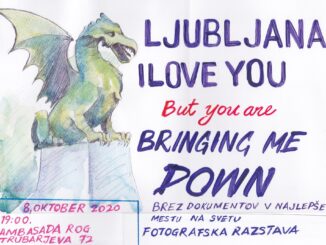 LJUBLJANA
I LOVE YOU
But you are
BRINGING ME
DOWN
BREZ DOKUMENTOV V NAJLEPŠE
MESTU NA SVETU
FOTOGRAFSKA RAZSTAVA
8, OKTOBER 2020
19:00.
AMBASADA ROG
TRUBARJEVA 72